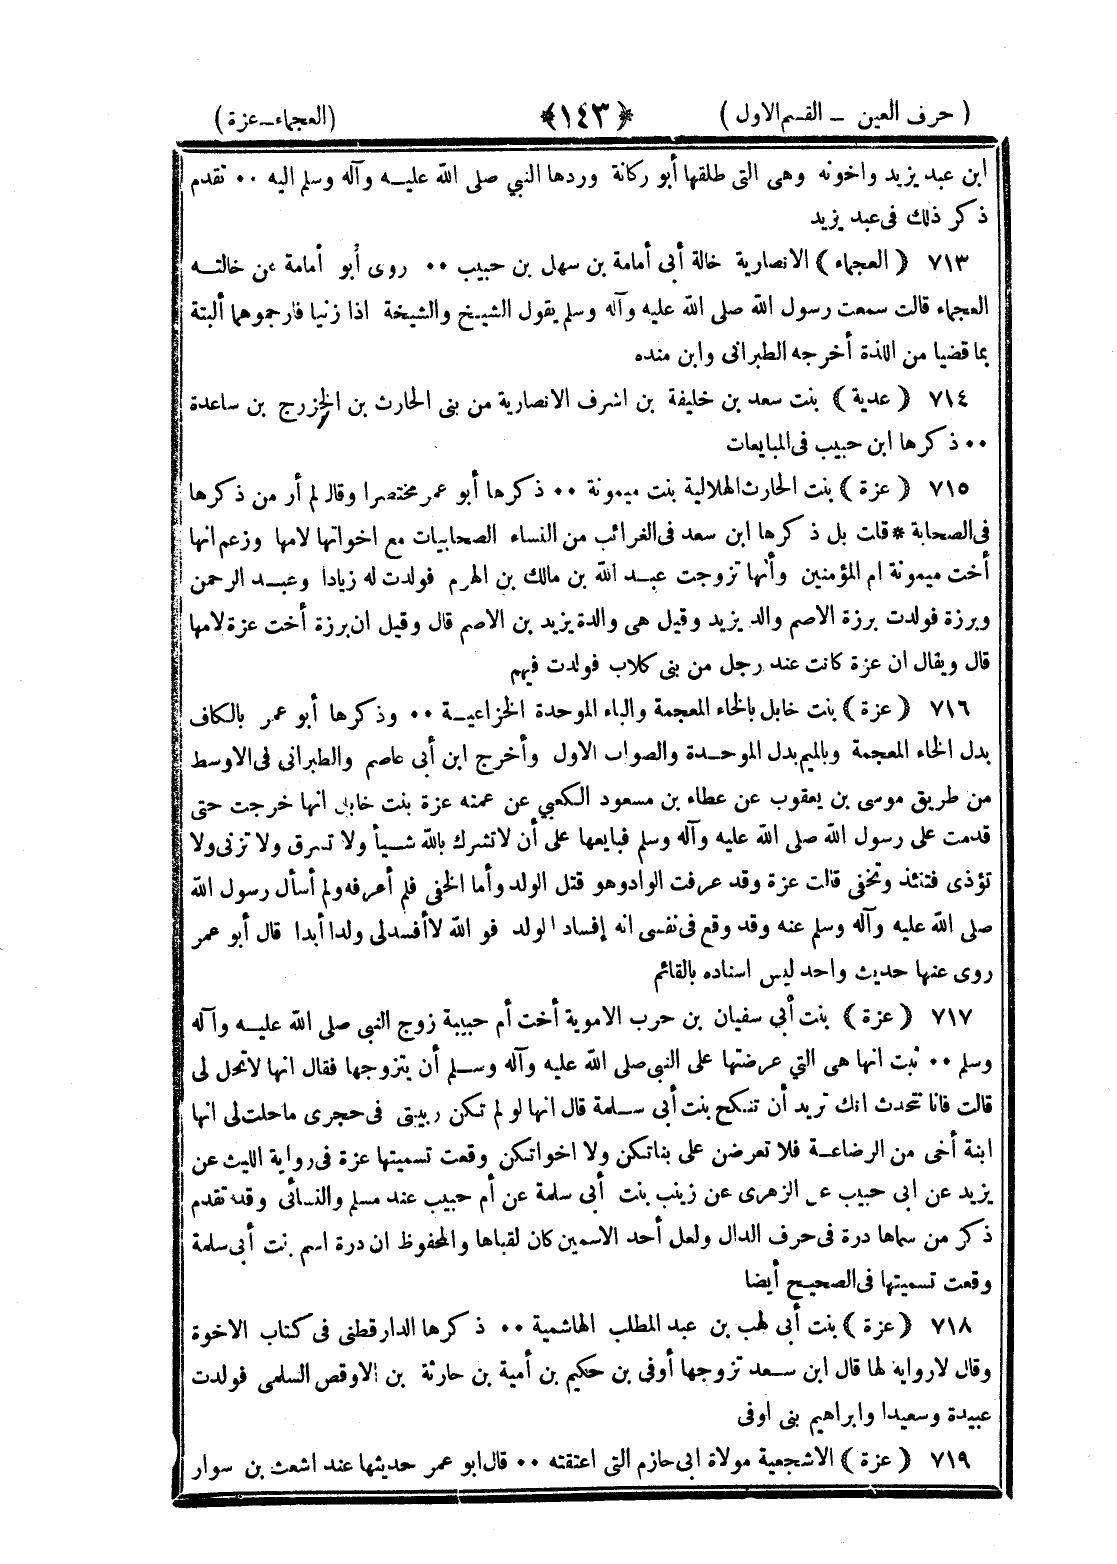 ( حرف العين – القسم الاول ) ﴿١٤٣﴾ (العجماء–عزة)
ابن عبد يزيد واخوته وهى التى طلقها أبو ركانة وردها النبي صلى الله عليه وآله وسلم اليه ٠٠ تقدم
ذكر ذلك فى عبد يزيد
٧١٣ ﴿العجماء﴾ الانصارية خالة أبى أمامة بن سهل بن حبيب ٠٠ روى أبو أمامة عن خالته
العجماء قالت سمعت رسول الله صلى الله عليه وآله وسلم يقول الشيخ والشيخة اذا زنيا فارجموهما ألبتة
بما قضيا من اللذة أخرجه الطبرانى وابن منده
٧١٤ ﴿عدية﴾ بنت سعد بن خليفة بن اشرف الانصارية من بنى الحارث بن الخزرج بن ساعدة
٠٠ ذكرها ابن حبيب فى المبايعات
٧١٥ ﴿عزة﴾ بنت الحارث الهلالية بنت ميمونة ٠٠ ذكرها أبو عمر مختصرا وقال لم أر من ذكرها
فى الصحابة * قات بل ذكرها ابن سعد فى الغرائب من النساء الصحابيات مع اخواتها لامها وزعم انها
أخت ميمونة ام المؤمنين وأنها تزوجت عبد الله بن مالك بن الهرم فولدت له زيادا وعبد الرحمن
وبرزة فولدت برزة الاصم والد يزيد وقيل هى والدة يزيد بن الاصم قال وقيل ان برزة أخت عزة لامها
قال ويقال ان عزة كانت عند رجل من بنى كلاب فولدت فيهم
٧١٦ ﴿عزة﴾ بنت خابل بالخاء المعجمة والباء الموحدة الخزاعية ٠٠ وذكرها أبو عمر بالكاف
بدل الخاء المعجمة وبالميم بدل الموحدة والصواب الاول وأخرج ابن أبى عاصم والطبرانى فى الاوسط
من طريق موسى بن يعقوب عن عطاء بن مسعود الكعبي عن عمته عزة بنت خابل انها خرجت حتى
قدمت على رسول الله صلى الله عليه وآله وسلم فبايعها على أن لاتشرك بالله شيأ ولا تسرق ولا تزنى ولا
تؤذى فتئذ وتخفى قالت عزة وقد عرفت الوادوهو قتل الولد وأما الخفى فلم أعرفه ولم أسأل رسول الله
صلى الله عليه وآله وسلم عنه وقد وقع فى نفسى انه إفساد الولد فو الله لاأفسد لى ولدا أبدا قال أبو عمر
روى عنها حديث واحد ليس اسناده بالقائم
٧١٧ ﴿عزة﴾ بنت أبي سفيان بن حرب الاموية أخت أم حبيبة زوج النبي صلى الله عليه وآله
وسلم ٠٠ ثبت انها هى التي عرضتها على النبى صلى الله عليه وآله وسلم أن يتزوجها فقال انها لاتحل لى
قالت فانا نتحدث انك تريد أن تنكح بنت أبي سلمة قال انها لو لم تكن ربيبتى فى حجرى ماحلت لى انها
ابنة أخى من الرضاعة فلا تعرضن على بناتكن ولا اخواتكن وقعت تسميتها عزة فى رواية الليث عن
يزيد عن ابى حبيب عن الزهرى عن زينب بنت أبى سلمة عن أم حبيب عند مسلم والنسائى وقد تقدم
ذكر من سماها درة فى حرف الدال ولعل أحد الاسمين كان لقباها والمحفوظ ان درة اسم بنت أبى سلمة
وقعت تسميتها فى الصحيح أيضا
٧١٨ ﴿عزة﴾ بنت أبى لهب بن عبد المطلب الهاشمية ٠٠ ذكرها الدارقطنى فى كتاب الاخوة
وقال لارواية لها قال ابن سعد تزوجها أوفى بن حكيم بن أمية بن حارثة بن الاوقص السلمى فولدت
عبيدة وسعيدا وابراهيم بنى اوفى
٧١٩ ﴿عزة﴾ الاشجعية مولاة ابى حازم التى اعتقته ٠٠ قال ابو عمر حديثها عند اشعث بن سوار